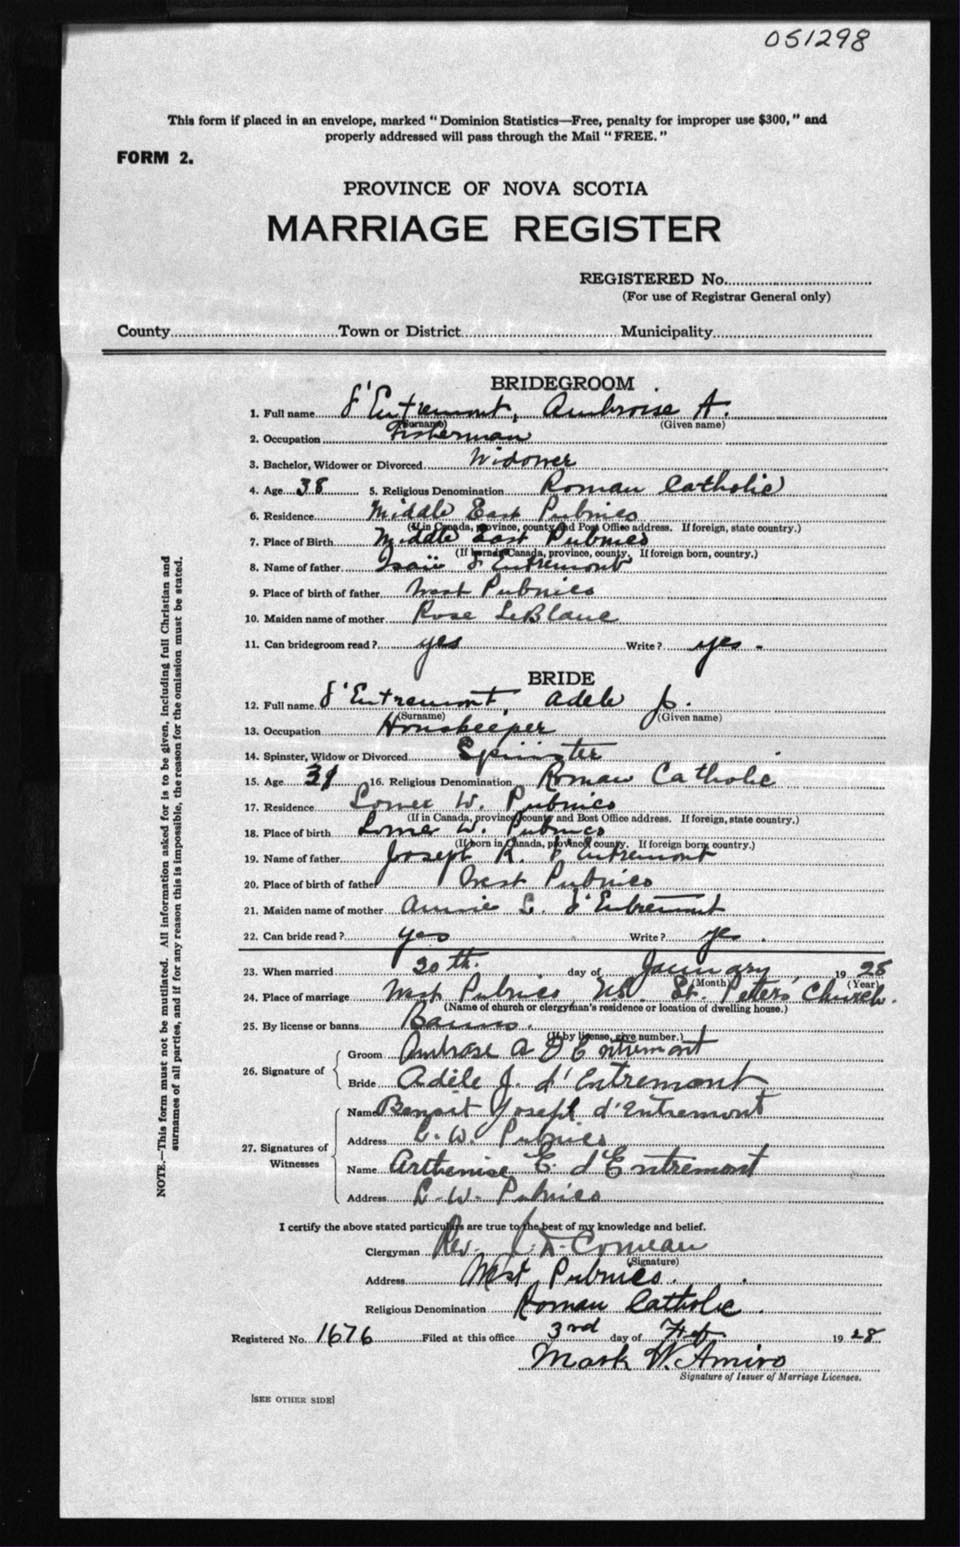 051298
This form if placed in an envelope, marked "Dominion Statistics—Free, penalty for improper use $300," and
properly addressed will pass through the Mail "FREE."
FORM 2.
PROVINCE OF NOVA SCOTIA
MARRIAGE REGISTER
REGISTERED No.
(For use of Registrar General only)
County Town or District Municipality
BRIDEGROOM
1. Full name d'Entremont, Ambroise A.
(Surname) (Given name)
2. Occupation Fisherman
3. Bachelor, Widower or Divorced Widower
4. Age 38 5. Religious Denomination Roman Catholic
6. Residence Middle East Pubnico
(If in Canada, province, county and Post Office address. If foreign, state country.)
7. Place of Birth Middle East Pubnico
(If born in Canada, province, county. If foreign born, country.)
8. Name of father Isaii d'Entremont
9. Place of birth of father West Pubnico
10. Maiden name of mother Rose LeBlanc
11. Can bridegroom read? yes Write? yes.
BRIDE
12. Full name d'Entremont, Adele J.
(Surname) (Given name)
13. Occupation Houskeeper
14. Spinster, Widow or Divorced Spinster
15. Age 16. Religious Denomination Roman Catholic
17. Residence Lower W. Pubnico
(If in Canada, province, county and Post Office address. If foreign, state country.)
18. Place of birth Lower W. Pubnico
(If born in Canada, province, county. If foreign born, country.)
19. Name of father Joseph R. d'Entremont
20. Place of birth of father West Pubnico
21. Maiden name of mother Annie L. d'Entremont
22. Can bride read? yes Write? yes.
23. When married 20th. day of January 1928
(Month) (Year)
24. Place of marriage West Pubnico NS. St. Peters' Church.
(Name of church or clergyman's residence or location of dwelling house.)
25. By license or banns Banns.
(If by license, give number.)
26. Signature of
Groom Ambrose A D'Entremont
Bride Adèle J. d'Entremont
27. Signatures of Witnesses
Name Benoit Joseph d'Entremont
Address L. W. Pubnico
Name Arthemise E. d'Entremont
Address L. W. Pubnico
I certify the above stated particulars are true to the best of my knowledge and belief.
Clergyman Rev. Comeau
(Signature)
Address West Pubnico.
Religious Denomination Roman Catholic.
Registered No. 1676 Filed at this office 3rd day of Feb 1928
Mark W. Amiro
Signature of Issuer of Marriage Licenses.
[SEE OTHER SIDE]
NOTE.—This form must not be mutilated. All information asked for is to be given, including full Christian and
surnames of all parties, and if for any reason this is impossible, the reason for the omission must be stated.